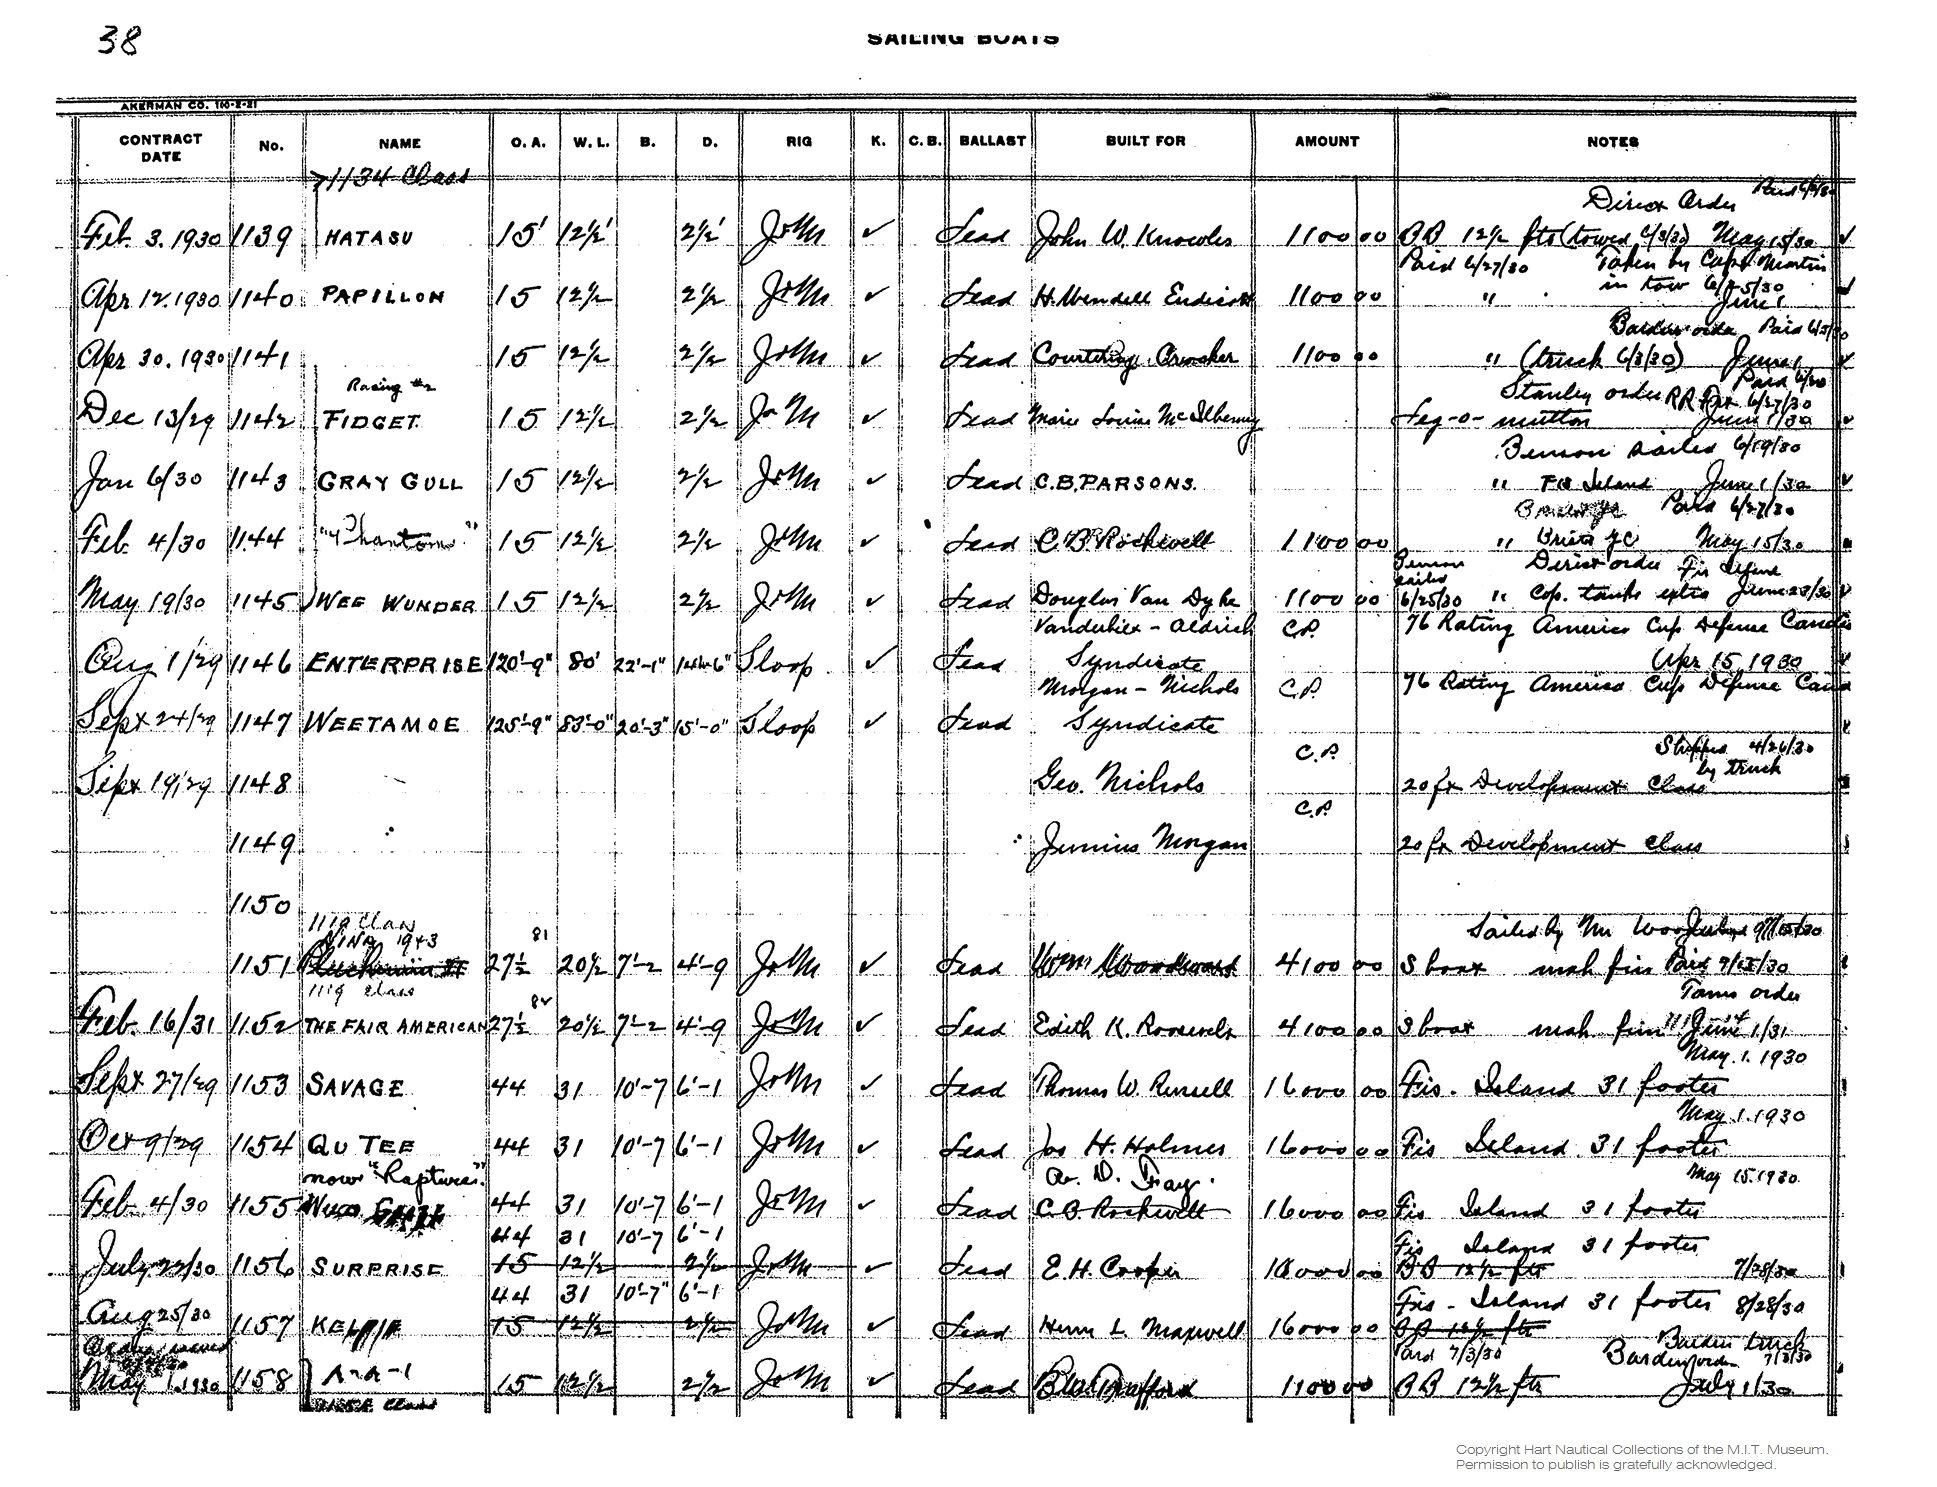 38
SAILING BOATS
AKERMAN CO. 100-2-21
CONTRACT DATE No. NAME O. A. W. L. B. D. RIG K. C. B. BALLAST BUILT FOR AMOUNT NOTES
1134 Class
Direct Order Paid
Feb. 3. 1930 1139 HATASU 15' 12½' 2½' J&M ✓ Lead John W. Knowles 1100 00 BB 12½ ftr (towed 6/3/30) May 15/30 ✓
Paid 6/27/30 Taken by Capt. Martin
in tow 6/25/30
Apr 12. 1930 1140 PAPILLON 15 12½ 2½ J&M ✓ Lead H. Wendell Endicott 1100 00 " June 1
Borden order Paid
Apr 30. 1930 1141 15 12½ 2½ J&M ✓ Lead Courtenay Crocker 1100 00 " (truck 6/3/30) June 1 ✓
Racing #2
Stanley order RR 6/27/30
Dec 13/29 1142 FIDGET 15 12½ 2½ J&M Lead Marie Louise McIlhenny Leg-o-mutton June 1/30 ✓
Benson sailed 6/19/30
Jan 6/30 1143 GRAY GULL 15 12½ 2½ J&M ✓ Lead C.B. PARSONS. " Fis Island June 1/30 ✓
Paid 6/27/30
Feb. 4/30 1144 "Phantom" 15 12½ 2½ J&M ✓ Lead C.B. Rockwell 1100 00 " Bristol YC May 15/30
Benson sailed Direct order Fis Island
May 19/30 1145 WEE WUNDER 15 12½ 2½ J&M ✓ Lead Douglas Van Dyke 1100 00 6/25/30 " Cop. tanks extra June 23/30 ✓
Vanderbilt - Aldrich C.P. 76 Rating America Cup Defense
Aug 1/29 1146 ENTERPRISE 120'-9" 80' 22'-1" 14'-6" Sloop ✓ Lead Syndicate Apr 15, 1930 ✓
Morgan - Nichols C.P. 76 Rating America Cup Defense Cand
Sept 24/29 1147 WEETAMOE 125'-9" 83'-0" 20'-3" 15'-0" Sloop ✓ Lead Syndicate
C.P. Shipped 4/26/30
by truck
Sept 19/29 1148 Geo. Nichols 20 ft Development Class
C.P.
1149 Junius Morgan 20 ft Development Class
1150
1119 Class
NINA 1943 81 Sailed by Mr
1151 27½ 20½ 7'-2 4'-9 J&M ✓ Lead Wm Woodward 4100 00 S boat mah fin Paid 9/15/30
1119 Class Tams order
82
Feb. 16/31 1152 THE FAIR AMERICAN 27½ 20½ 7'-2 4'-9 J&M ✓ Lead Edith K. Roosevelt 4100 00 S boat mah fin June 1/31
May. 1. 1930
Sept 27/29 1153 SAVAGE 44 31 10'-7 6'-1 J&M ✓ Lead Thomas W. Russell 16000 00 Fis. Island 31 footer
May. 1. 1930
Oct 9/29 1154 QU TEE 44 31 10'-7 6'-1 J&M ✓ Lead Jos H. Holmes 16000 00 Fis Island 31 footer
now "Rapture" May 15. 1930
Feb. 4/30 1155 44 31 10'-7 6'-1 J&M ✓ Lead C.B. Rockwell 16000 00 Fis Island 31 footer
44 31 10'-7 6'-1 Fis Island 31 footer
July 22/30 1156 SURPRISE 15 12½ 2½ J&M ✓ Lead E.H. Cooper 16000 00 BB 12½ ftr 7/28/30
44 31 10'-7" 6'-1 Fis - Island 31 footer 8/28/30
Aug 25/30 1157 KELPIE 15 12½ 2½ J&M ✓ Lead Henry L. Maxwell 16000 00 BB 12½ ftr
Paid 7/3/30 Borden truck
Borden order 7/3/30
May 1. 1930 1158 15 12½ 2½ J&M ✓ Lead 1100 00 BB 12½ ftr July 1/30
Class
Copyright Hart Nautical Collections of the M.I.T. Museum.
Permission to publish is gratefully acknowledged.